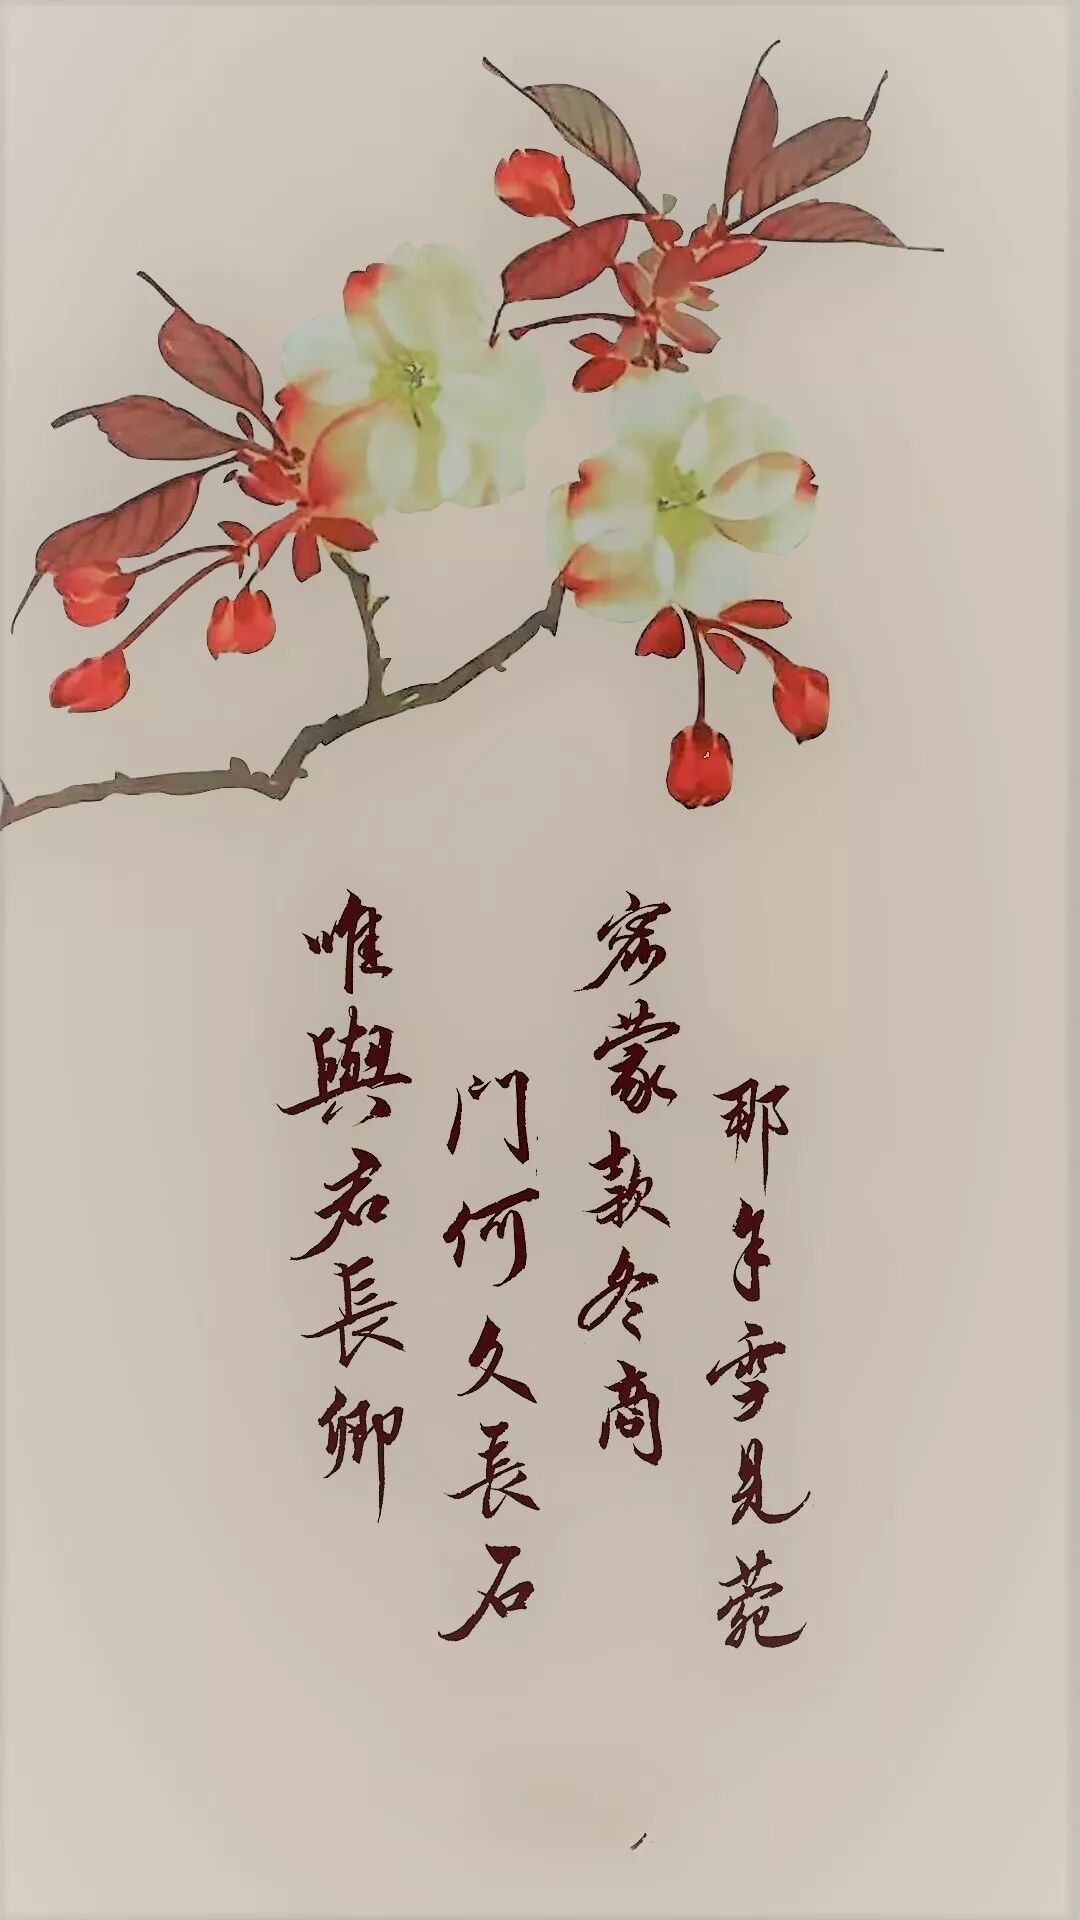 那年雪见菀
密蒙款冬商
门何久長石
唯與君長卿